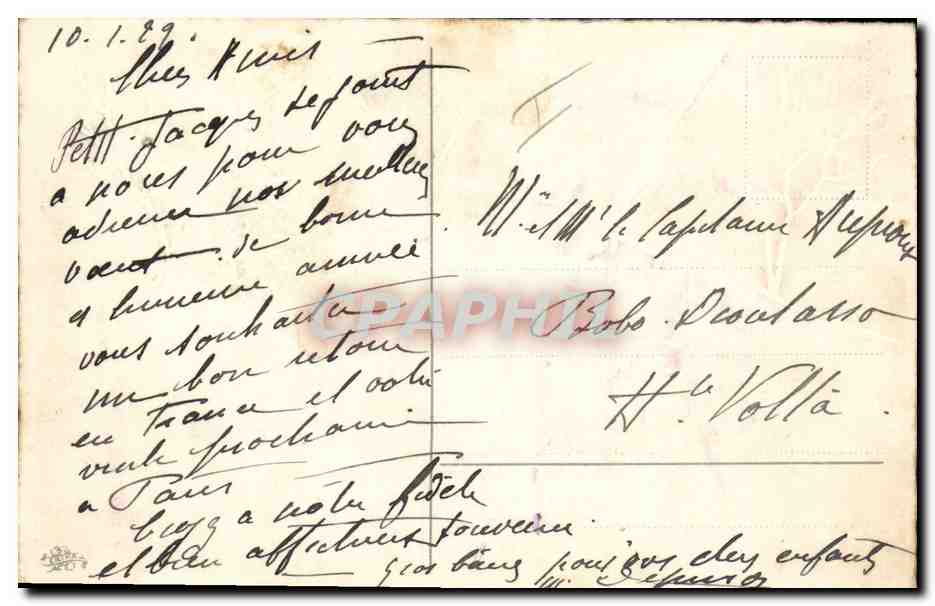 10.1.29.
Chers Amis
Petit Jacques se joint
a nous pour vous
adresser nos meilleurs
vœux de bonne
et heureuse année
vous souhaiter
un bon retour
en France et votre
visite prochaine
a Paris
a notre fidèle
et bien affectueux souvenir
gros baisers pour vos chers enfants
Mme et Mr le Capitaine
Bobo-Dioulasso
Hte Volta.
CPAPHIL